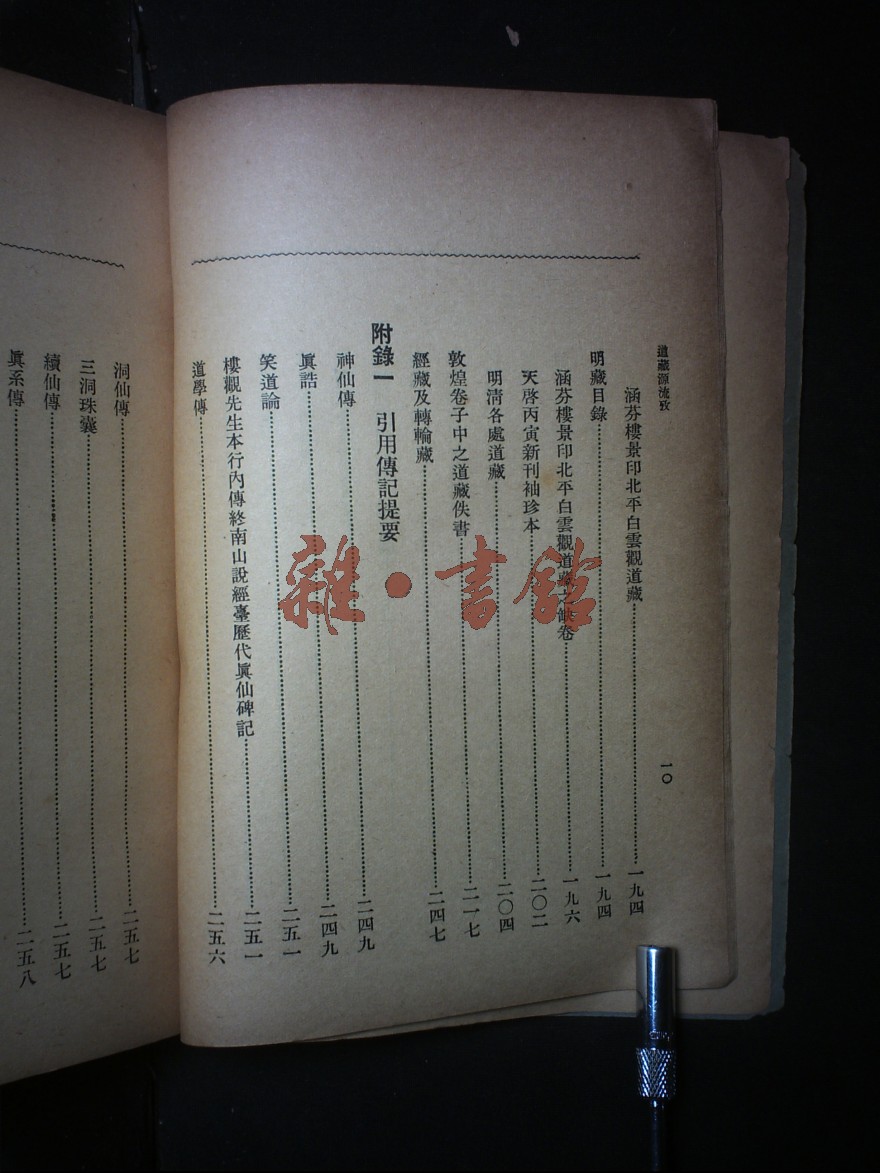 道藏源流攷
一〇
涵芬樓景印北平白雲觀道藏……一九四
明藏目錄……一九四
涵芬樓景印北平白雲觀道藏之缺卷……一九六
天啓丙寅新刊袖珍本……二〇二
明清各處道藏……二〇四
敦煌卷子中之道藏佚書……二一七
經藏及轉輪藏……二四七
附錄一 引用傳記提要
神仙傳……二四九
眞誥……二四九
笑道論……二五一
樓觀先生本行內傳終南山說經臺歷代眞仙碑記……二五一
道學傳……二五六
洞仙傳……二五七
三洞珠囊……二五七
續仙傳……二五七
眞系傳……二五八
雜·書館